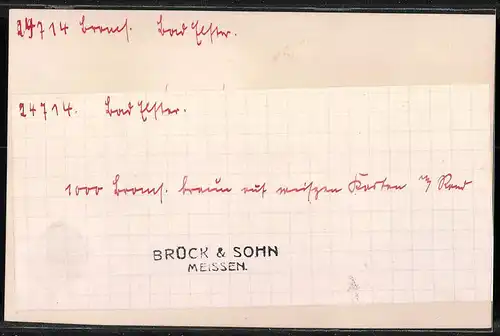 24714 Broms. Bad Elster.
24714. Bad Elster.
1000 Broms. braun auf weißen Karton m/ Rand
BRÜCK & SOHN
MEISSEN.